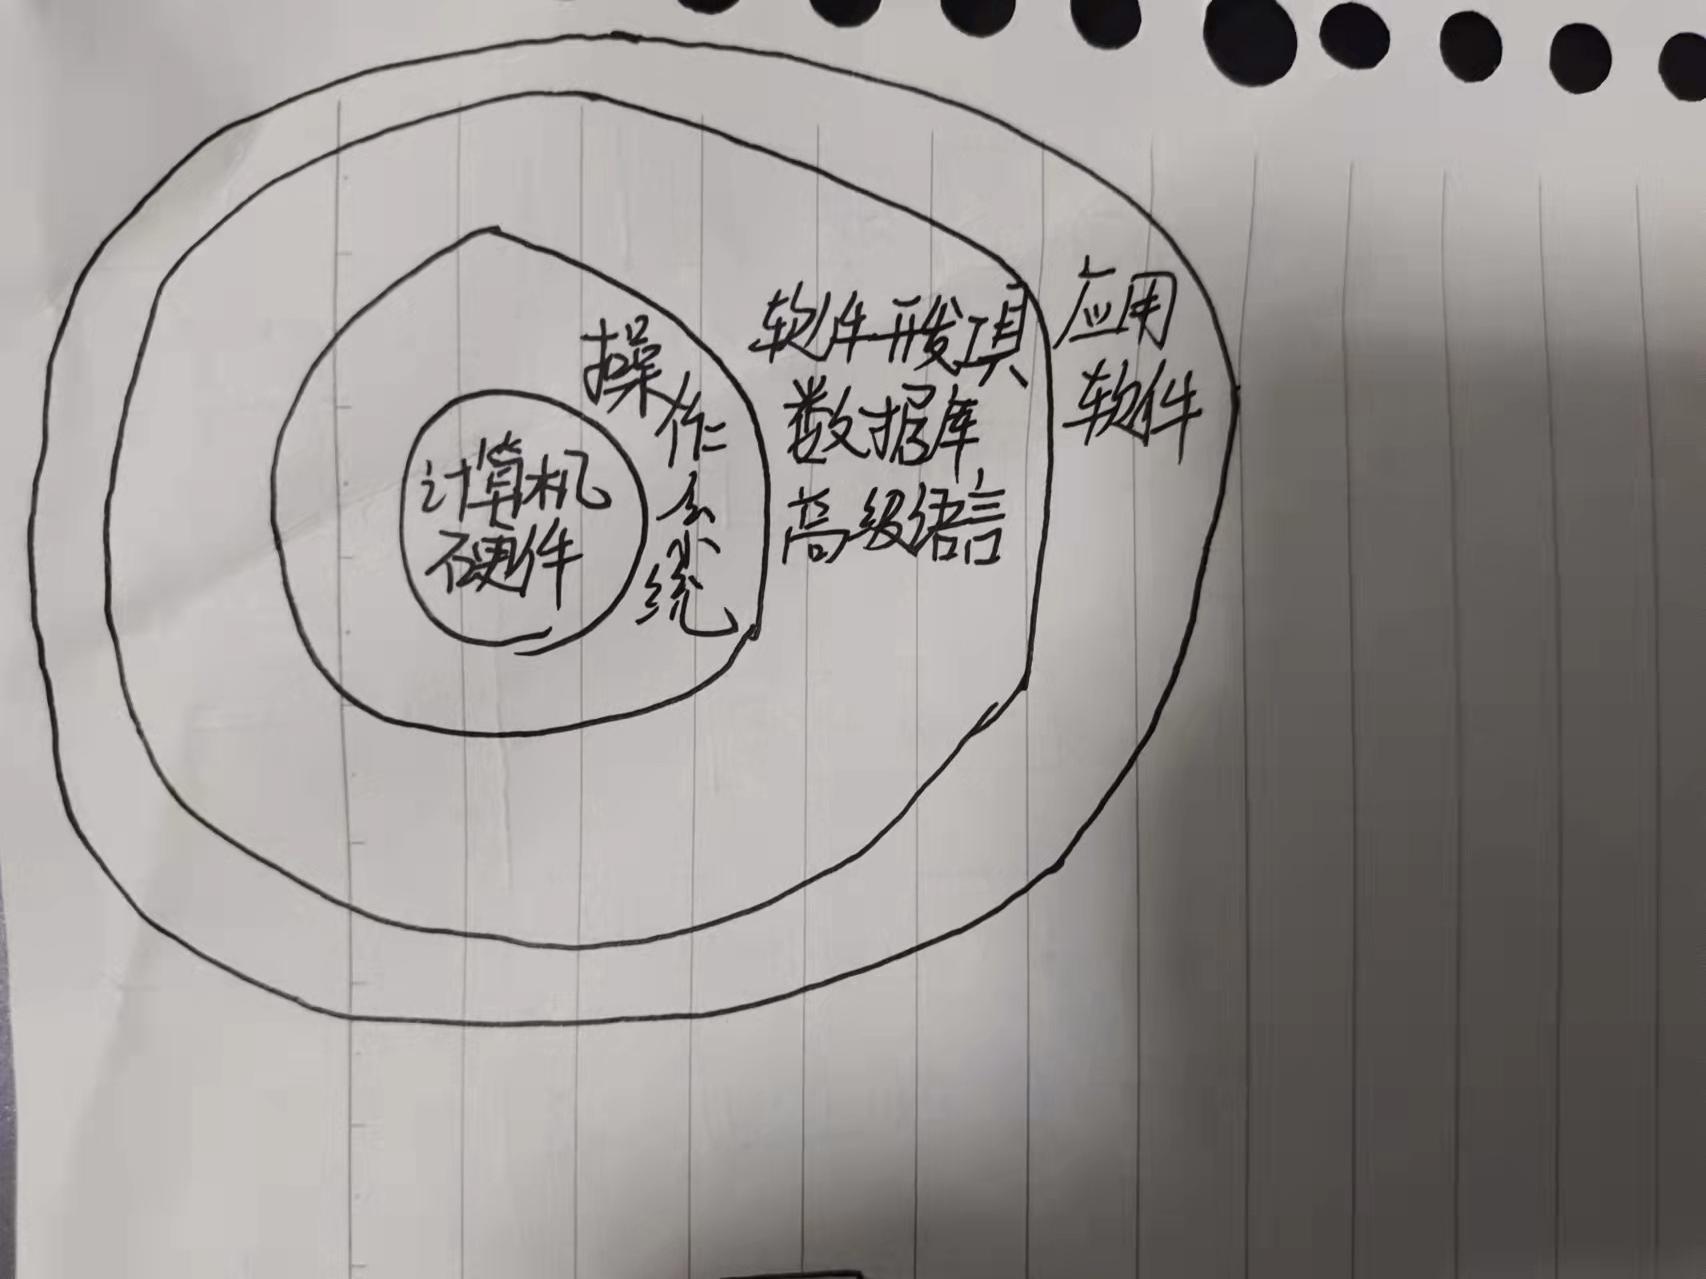 计算机
硬件
操作系统
软件开发工具
数据库
高级语言
应用
软件